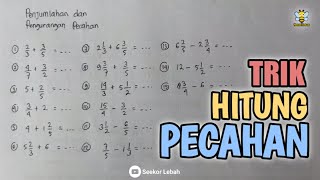 Penjumlahan dan
Pengurangan Pecahan
① 2/3 + 3/5 = ....
② 4/7 + 3/2 = ....
③ 5 + 2/5 = ....
④ 3/4 + 2 = ....
⑤ 4 + 1 2/5 = ....
⑥ 5 2/3 + 6 = ....
⑦ 2 1/3 + 6 3/5 = ....
⑧ 8 3/2 + 3/5 = ....
⑨ 19/3 + 5 1/2 = ....
⑩ 15/4 - 3/2 = ....
⑪ 3 1/2 - 6/5 = ....
⑫ 7/5 - 1 1/3 = ....
⑬ 6 2/5 - 2 3/4 = ....
⑭ 12 - 5 1/2 = ....
⑮ 8 3/4 - 6 = ....
TRIK
HITUNG
PECAHAN
Seekor Lebah